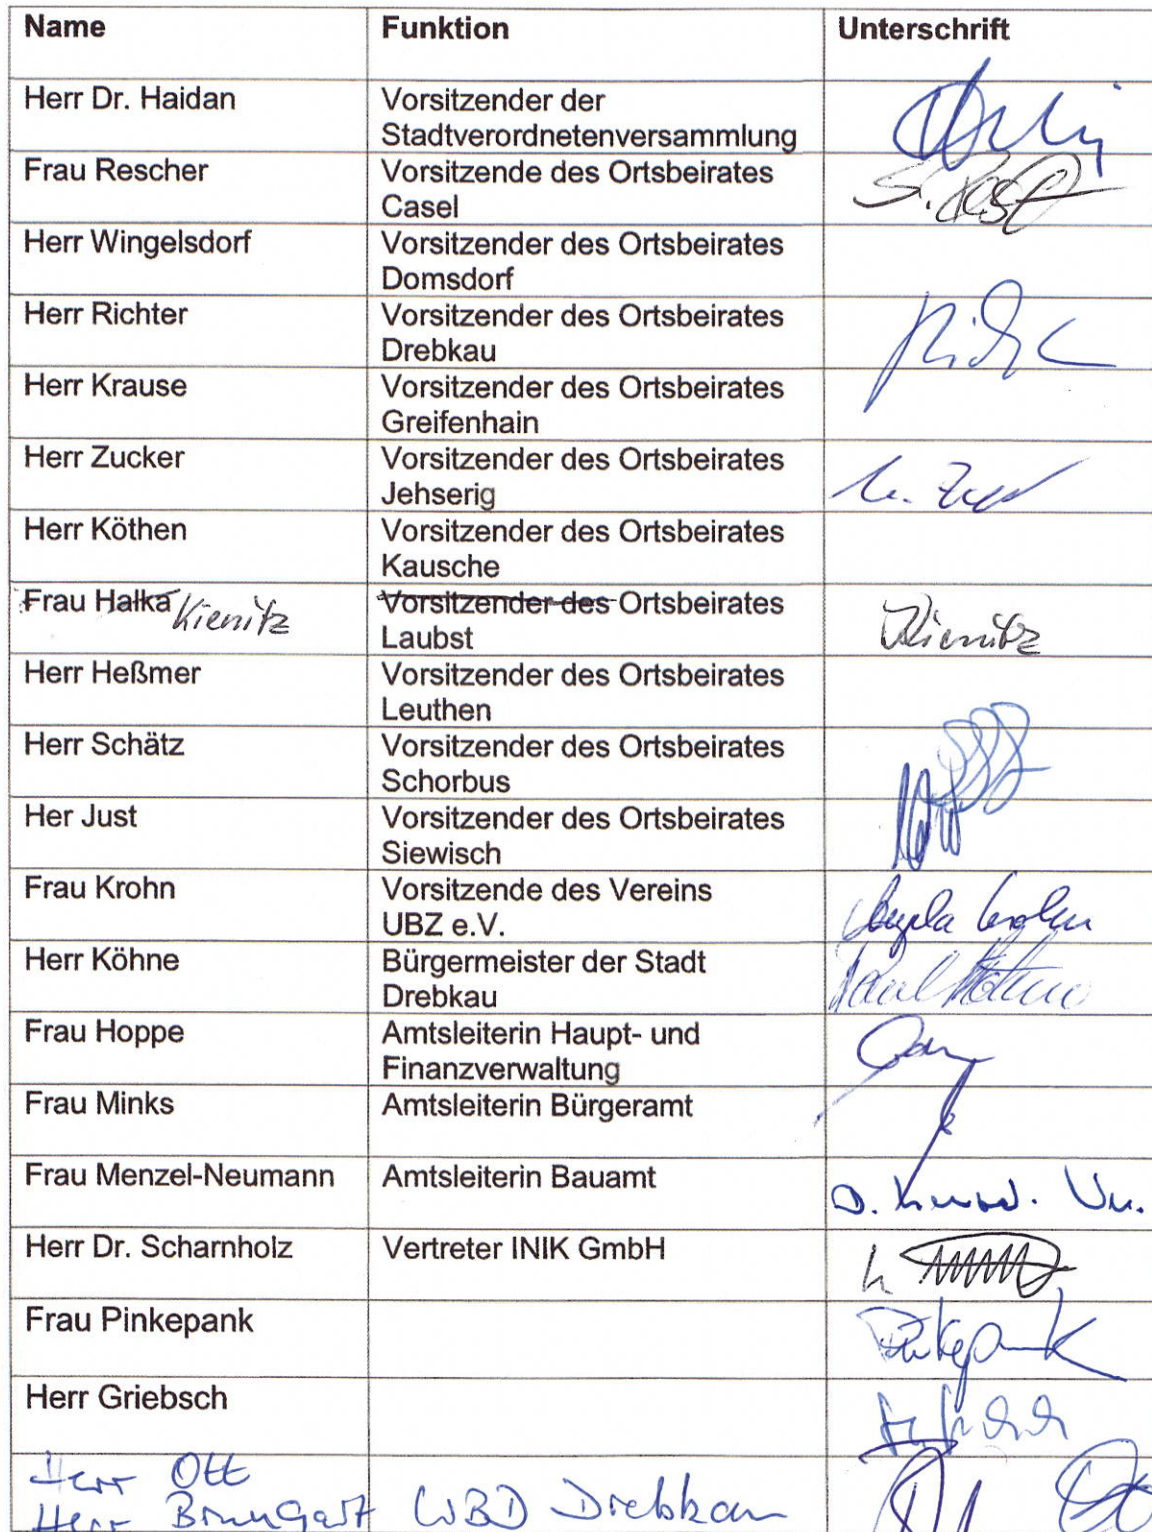 Name Funktion Unterschrift
Herr Dr. Haidan Vorsitzender der
Stadtverordnetenversammlung
Frau Rescher Vorsitzende des Ortsbeirates
Casel
Herr Wingelsdorf Vorsitzender des Ortsbeirates
Domsdorf
Herr Richter Vorsitzender des Ortsbeirates
Drebkau
Herr Krause Vorsitzender des Ortsbeirates
Greifenhain
Herr Zucker Vorsitzender des Ortsbeirates
Jehserig
Herr Köthen Vorsitzender des Ortsbeirates
Kausche
Frau Halka Kienitz Vorsitzender des Ortsbeirates Kienitz
Laubst
Herr Heßmer Vorsitzender des Ortsbeirates
Leuthen
Herr Schätz Vorsitzender des Ortsbeirates
Schorbus
Her Just Vorsitzender des Ortsbeirates
Siewisch
Frau Krohn Vorsitzende des Vereins
UBZ e.V. Angela Krohn
Herr Köhne Bürgermeister der Stadt
Drebkau
Frau Hoppe Amtsleiterin Haupt- und
Finanzverwaltung
Frau Minks Amtsleiterin Bürgeramt
Frau Menzel-Neumann Amtsleiterin Bauamt
Herr Dr. Scharnholz Vertreter INIK GmbH
Frau Pinkepank Pinkepank
Herr Griebsch
Herr Ott
Herr WBD Drebkau